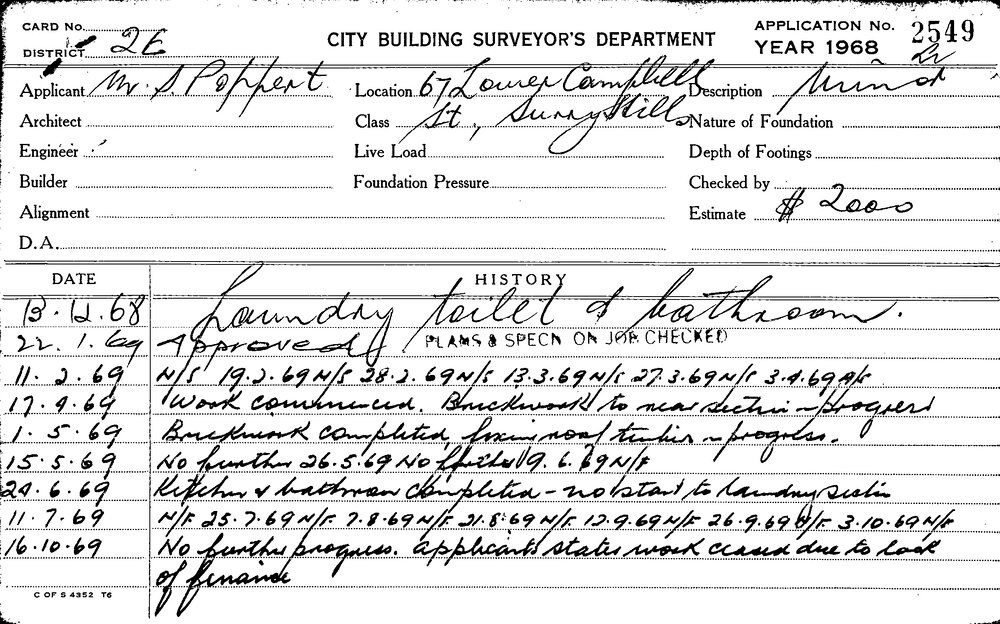 CARD No.
DISTRICT 2E
CITY BUILDING SURVEYOR'S DEPARTMENT
APPLICATION No. 2549
YEAR 1968
Applicant Mr. S. Poppert
Location 67 Lower Campbell
Description
Architect
Class St., Surry Hills
Nature of Foundation
Engineer
Live Load
Depth of Footings
Builder
Foundation Pressure
Checked by
Alignment
Estimate $ 2000
D.A.
DATE HISTORY
13.12.68 Laundry toilet & bathroom.
22.1.69 Approved PLANS & SPECN ON JOB CHECKED
11.2.69 N/S 19.2.69 N/S 28.2.69 N/S 13.3.69 N/S 27.3.69 N/S 3.4.69 N/S
17.4.69 Work commenced. Brickwork to rear section in progress
1.5.69 Brickwork completed, fixing roof timber in progress.
15.5.69 No further 26.5.69 No further 9.6.69 N/F
24.6.69 Kitchen & bathroom completed - no start to laundry section
11.7.69 N/F 25.7.69 N/F 7.8.69 N/F 21.8.69 N/F 12.9.69 N/F 26.9.69 N/F 3.10.69 N/F
16.10.69 No further progress. Applicant states work ceased due to lack
of finance
C OF S 4352 T6